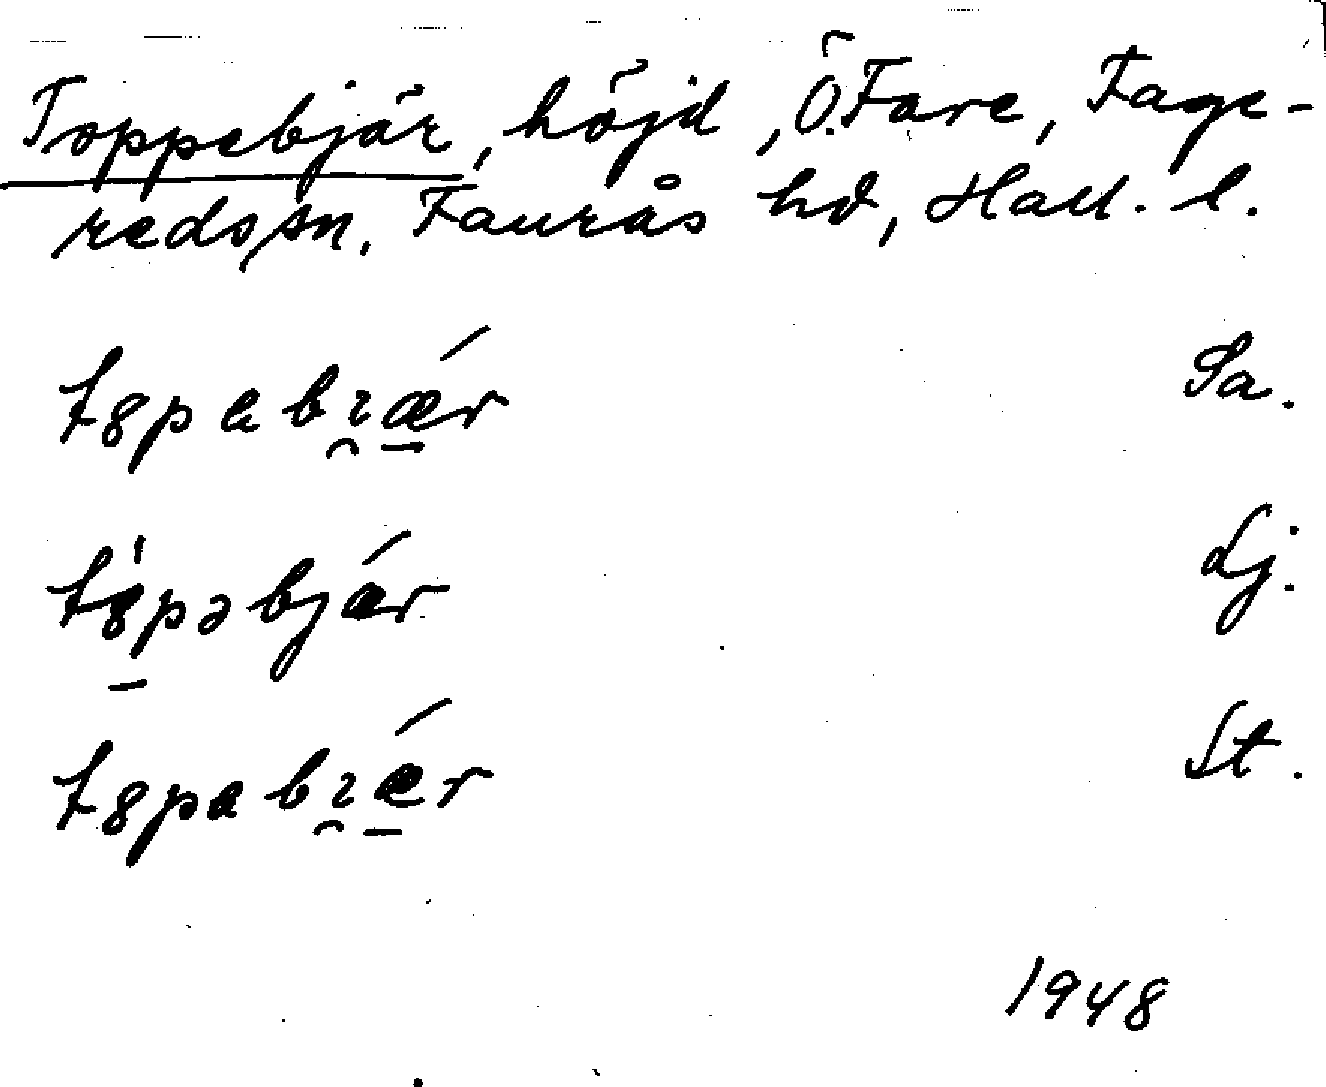 Toppebjär, höjd, Ö. Fare, Fage-
reds sn, Faurås hd, Hall. l.
tȣpabɿǽr Sa.
tȣ́pəbjár Lj.
tȣpabɿǽr St.
1948